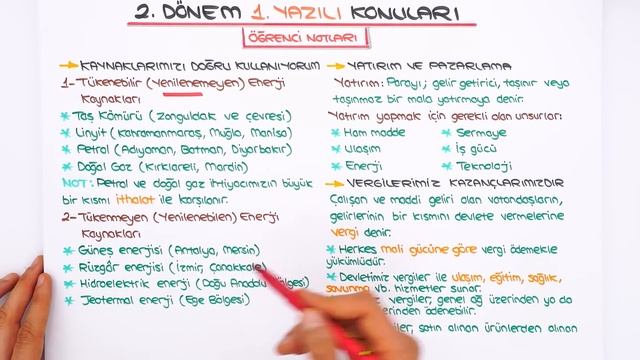 2. DÖNEM 1. YAZILI KONULARI
ÖĞRENCİ NOTLARI
→ KAYNAKLARIMIZI DOĞRU KULLANIYORUM
1- Tükenebilir (Yenilenemeyen) Enerji
Kaynakları
* Taş Kömürü (Zonguldak ve çevresi)
* Linyit (Kahramanmaraş, Muğla, Manisa)
* Petrol (Adıyaman, Batman, Diyarbakır)
* Doğal Gaz (Kırklareli, Mardin)
NOT: Petrol ve doğal gaz ihtiyacımızın büyük
bir kısmı ithalat ile karşılanır.
2- Tükenmeyen (Yenilenebilen) Enerji
Kaynakları
* Güneş enerjisi (Antalya, Mersin)
* Rüzgâr enerjisi (İzmir, Çanakkale)
* Hidroelektrik enerji (Doğu Anadolu Bölgesi)
* Jeotermal enerji (Ege Bölgesi)
→ YATIRIM VE PAZARLAMA
Yatırım: Parayı; gelir getirici, taşınır veya
taşınmaz bir mala yatırmaya denir.
Yatırım yapmak için gerekli olan unsurlar:
* Ham madde * Sermaye
* Ulaşım * İş gücü
* Enerji * Teknoloji
→ VERGİLERİMİZ KAZANÇLARIMIZDIR
Çalışan ve maddi geliri olan vatandaşların,
gelirlerinin bir kısmını devlete vermelerine
vergi denir.
* Herkes mali gücüne göre vergi ödemekle
yükümlüdür.
* Devletimiz vergiler ile ulaşım, eğitim, sağlık,
savunma vb. hizmetler sunar.
vergiler, genel ağ üzerinden ya da
ödenebilir.
satın alınan ürünlerden alınan